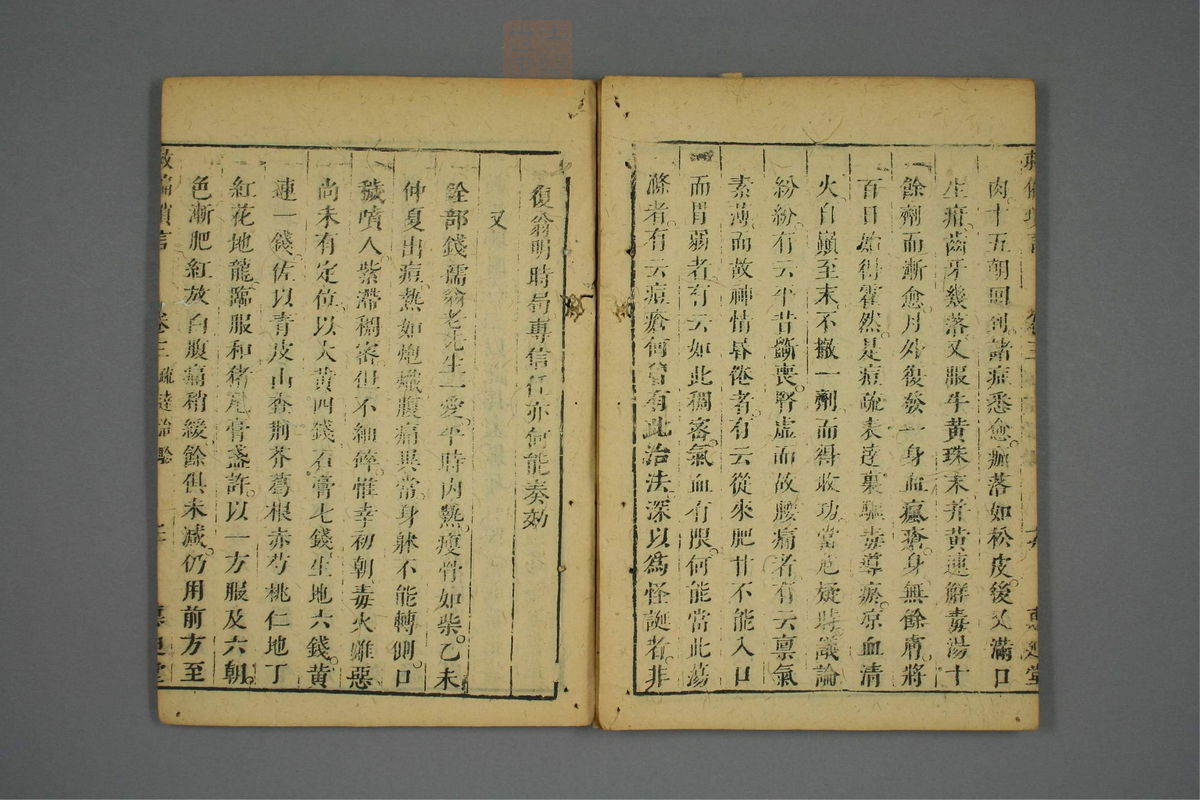 肉十五朝回到諸症悉愈痂落如松皮後又滿口
生疳齒牙幾落又服牛黃珠末并黃連解毒湯十
餘劑而漸愈月外復發一身血瘋瘡身無餘膚將
百日始得霍然是痘疏表達裏驅毒導瘀凉血清
火自巔至末不撤一劑而得收功當危疑時議論
紛紛有云平昔斵喪腎虛而故腰痛者有云禀氣
素薄而故神情昏倦者有云從來肥甘不能入口
而胃弱者有云如此稠密氣血有限何能當此蕩
滌者有云痘瘡何曾有此治法深以爲怪誕者非
復翁明時局專信任亦何能奏効
又
銓部錢孺翁老先生一愛平時內熱瘦骨如柴乙未
仲夏出痘熱如炮爁腹痛異常身躰不能轉側口
穢噴人紫滯稠密但不細碎惟幸初朝毒火雖惡
尚未有定位以大黃四錢石膏七錢生地六錢黃
連一錢佐以青皮山查荆芥葛根赤芍桃仁地丁
紅花地龍臨服和猪尾膏盞許以一方服及六朝
色漸肥紅放白腹痛稍緩餘俱未减仍用前方至
卷三